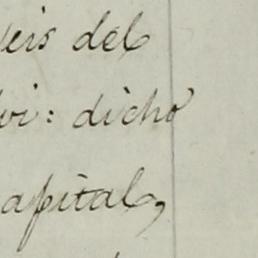 seis del
vi: dicho
apital,